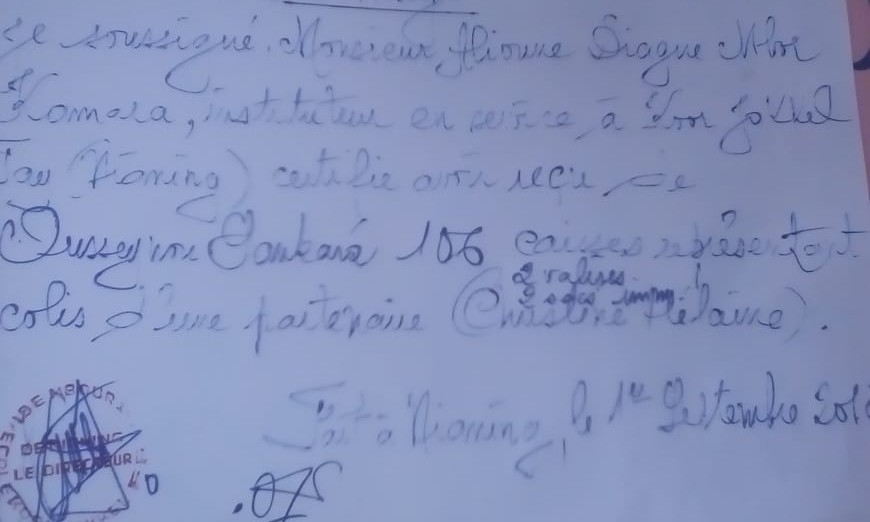 Je soussigné, Monsieur Alioune Diagne Mbor
Kamara, instituteur en service à Knor
(Nianing) certifie avoir reçu de
Ousseynou Sankaré 106 caisses représentant
2 valises.
2 sacs
colis d'une partenaire (Christine Hélaine).
Fait à Nianing, le 1er Septembre
DE NIANING
LE DIRECTEUR